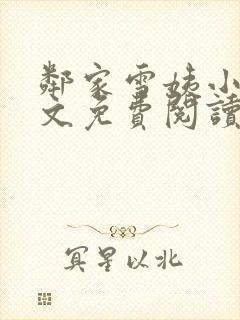 鄰家雪姨小
文免費閱讀
冥星以北